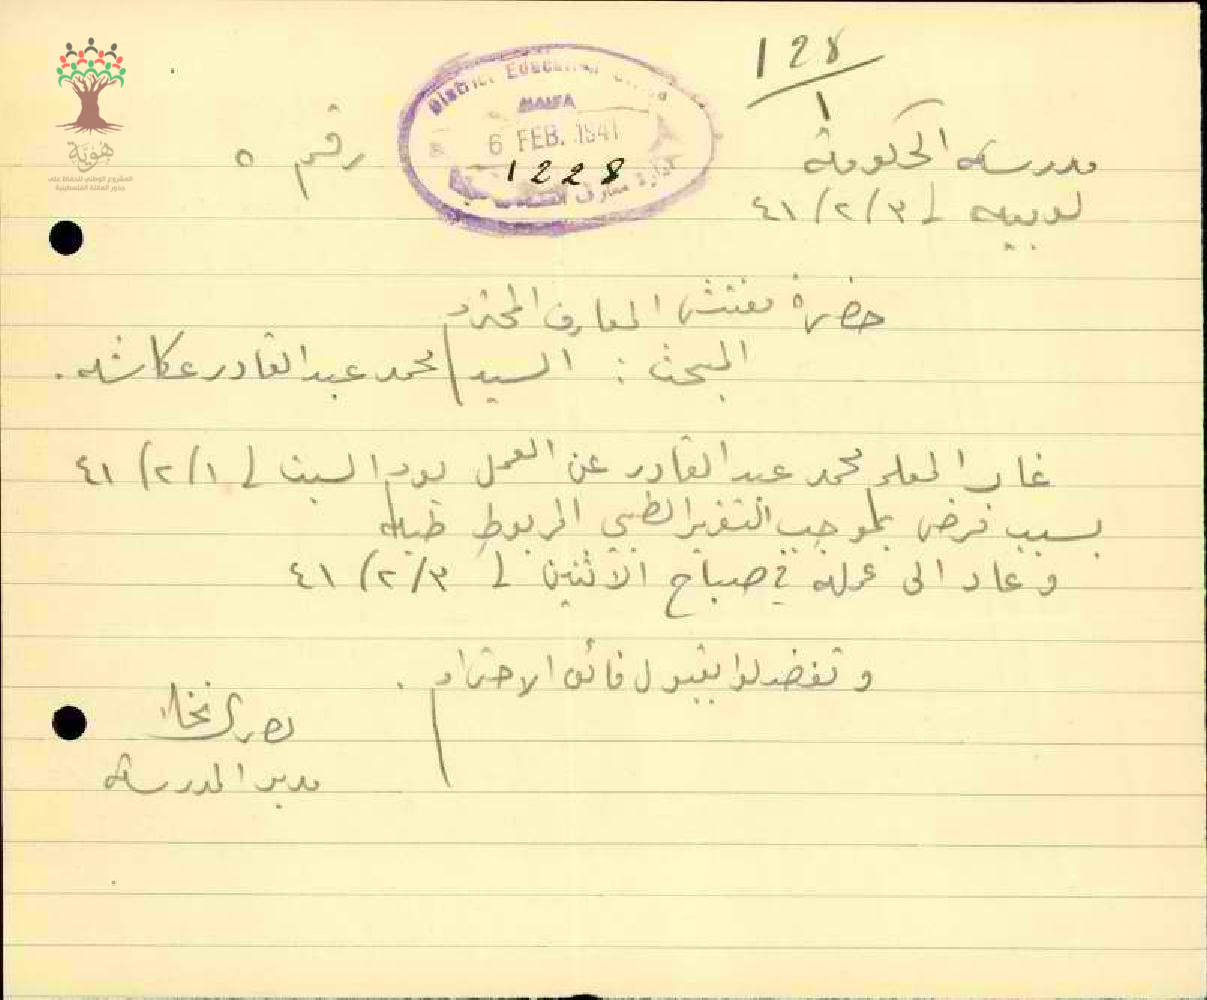 128
1
District Education Office
HAIFA
6 FEB. 1941
1228
ادارة معارف
هوية
المشروع الوطني للحفاظ على
جذور العائلة الفلسطينية
رقم ٥
مدرسة الحكومة
لوبيه في ٤١/٢/٣
حضرة مفتش المعارف المحترم
المبحث : السيد محمد عبد القادر عكاشه .
غاب المعلم محمد عبد القادر عن العمل يوم السبت في ٤١/٢/١
بسبب مرض بموجب التقرير الطبي المربوط طيه
وعاد الى عمله في صباح الاثنين في ٤١/٢/٣
وتفضلوا بقبول فائق الاحترام .
مدير المدرسة